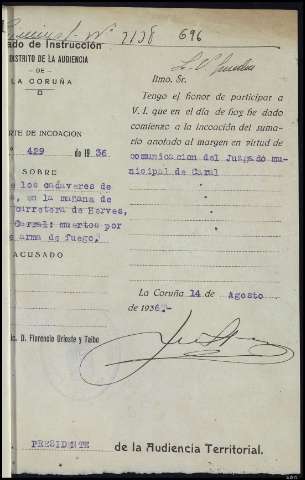 Nº 1138 696
ado de Instrucción
DISTRITO DE LA AUDIENCIA
- DE -
LA CORUÑA
RTE DE INCOACIÓN
429 de 1936
SOBRE
e los cadaveres de
, en la mañana de
carretera de Herves,
Carral: muertos por
e arma de fuego,
ACUSADO
ic. D. Florencio Urioste y Taibo
Ilmo. Sr.
Tengo el honor de participar a
V. I. que en el día de hoy he dado
comienzo a la incoación del suma-
rio anotado al margen en virtud de
comunicacion del Juzgado mu-
nicipal de Caral
La Coruña 14 de Agosto
de 1936.-
PRESIDENTE de la Audiencia Territorial.